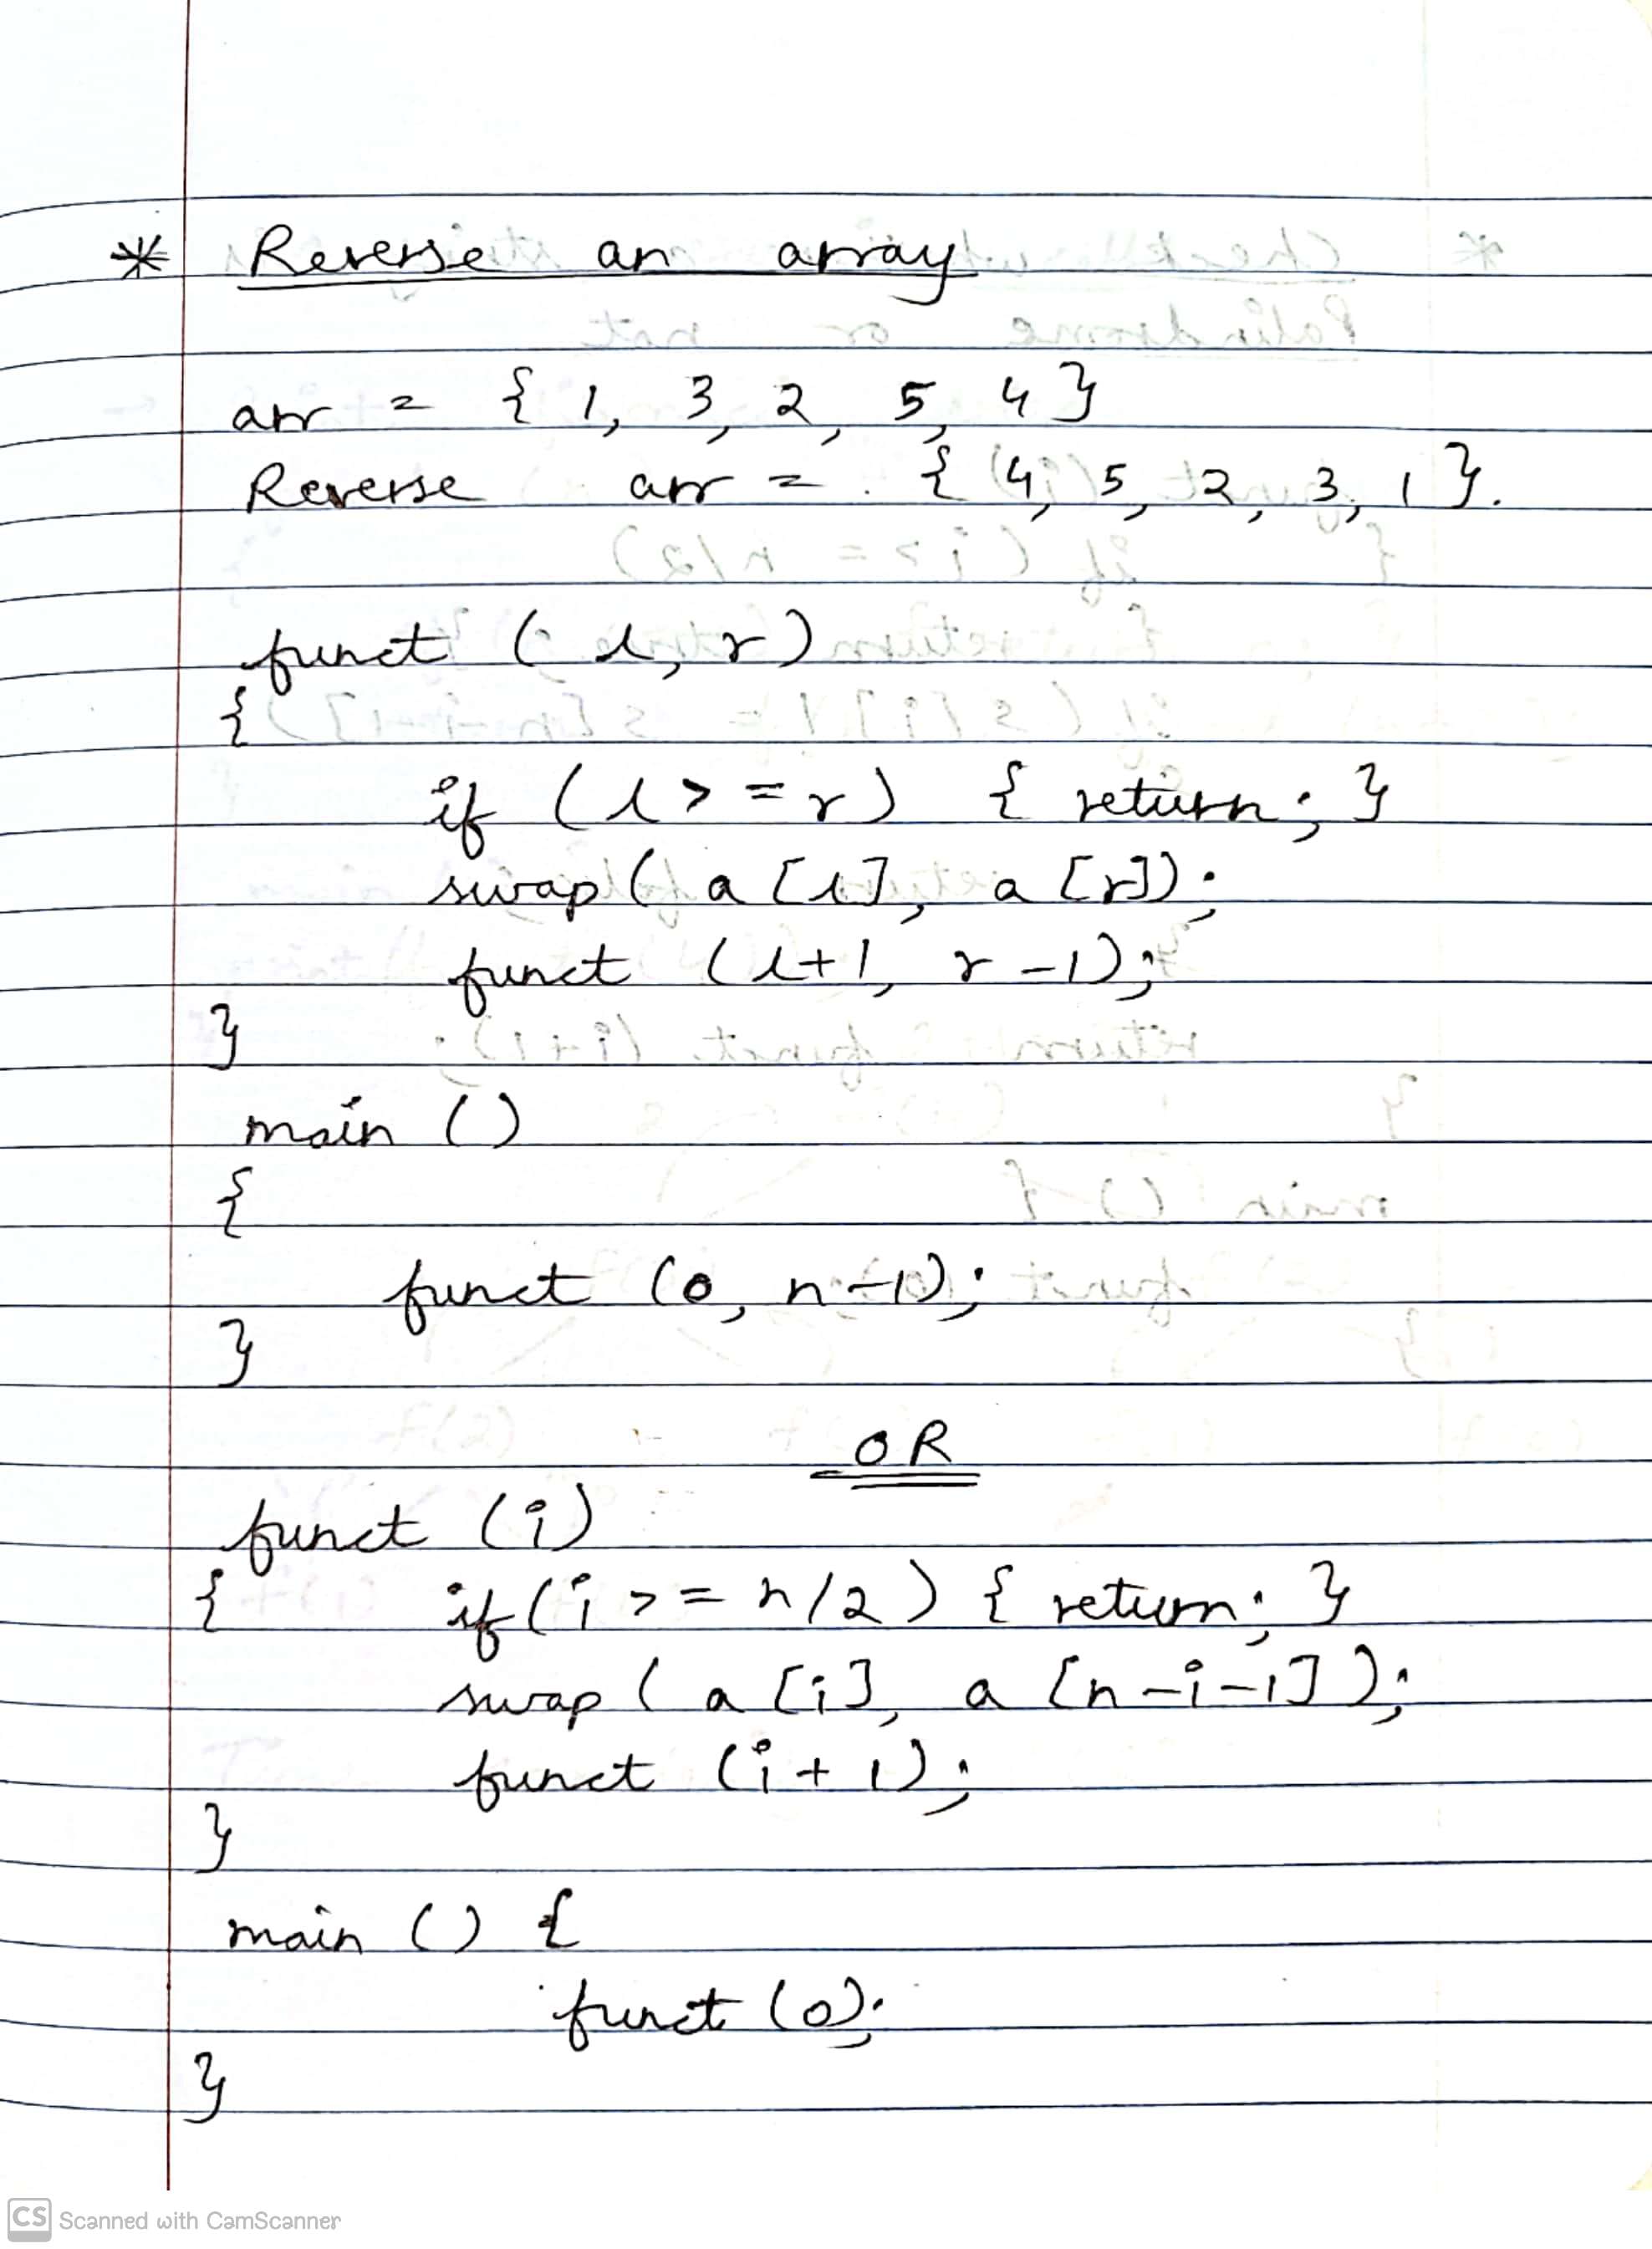 * Reverse an array
arr = { 1, 3, 2, 5, 4 }
Reverse arr = { 4, 5, 2, 3, 1 }.
funct ( l, r )
{
if ( l > = r ) { return ; }
swap ( a [l], a [r] ) ;
funct ( l+1, r -1 ) ;
}
main ()
{
funct (0, n-1) ;
}
OR
funct (i)
{ if ( i > = n/2 ) { return ; }
swap ( a [i], a [n-i-1] ) ;
funct (i+1) ;
}
main () {
funct (0) ;
}
CS Scanned with CamScanner